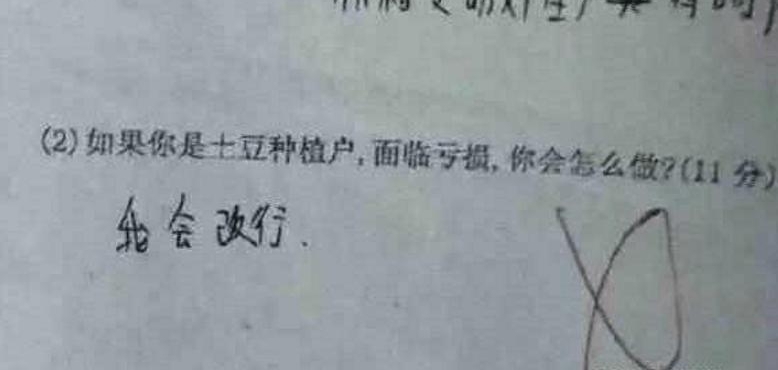 (2)如果你是土豆种植户,面临亏损,你会怎么做?(11 分)
我会改行.